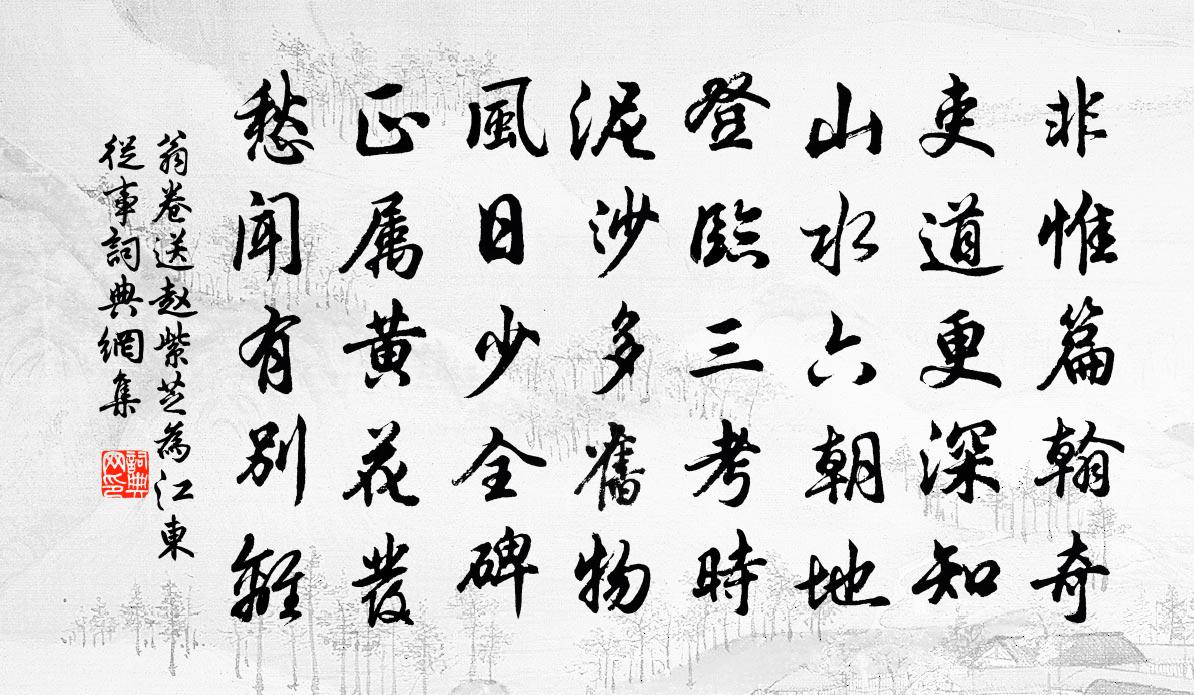 非惟篇翰奇
吏道更深知
山水六朝地
登臨三考時
泥沙多舊物
風日少全碑
正属黄花發
愁聞有别離
翁卷送赵紫芝為江東
從事詞典網集
詞典网印